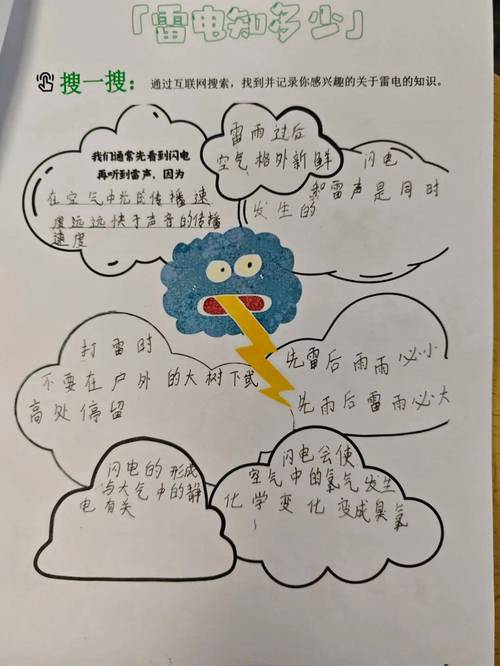 「雷电知多少」
搜一搜：通过互联网搜索，找到并记录你感兴趣的关于雷电的知识。
我们通常先看到闪电
再听到雷声，因为
在空气中光的传播速
度远远快于声音的传播
速度
雷雨过后
空气格外新鲜
闪电
和雷声是同时
发生的
打雷时
不要在户外的大树下或
高处停留
先雷后雨雨必小
先雨后雷雨必大
闪电的形成
与大气中的静
电有关
闪电会使
空气中的氧气发生
化学变化变成臭氧